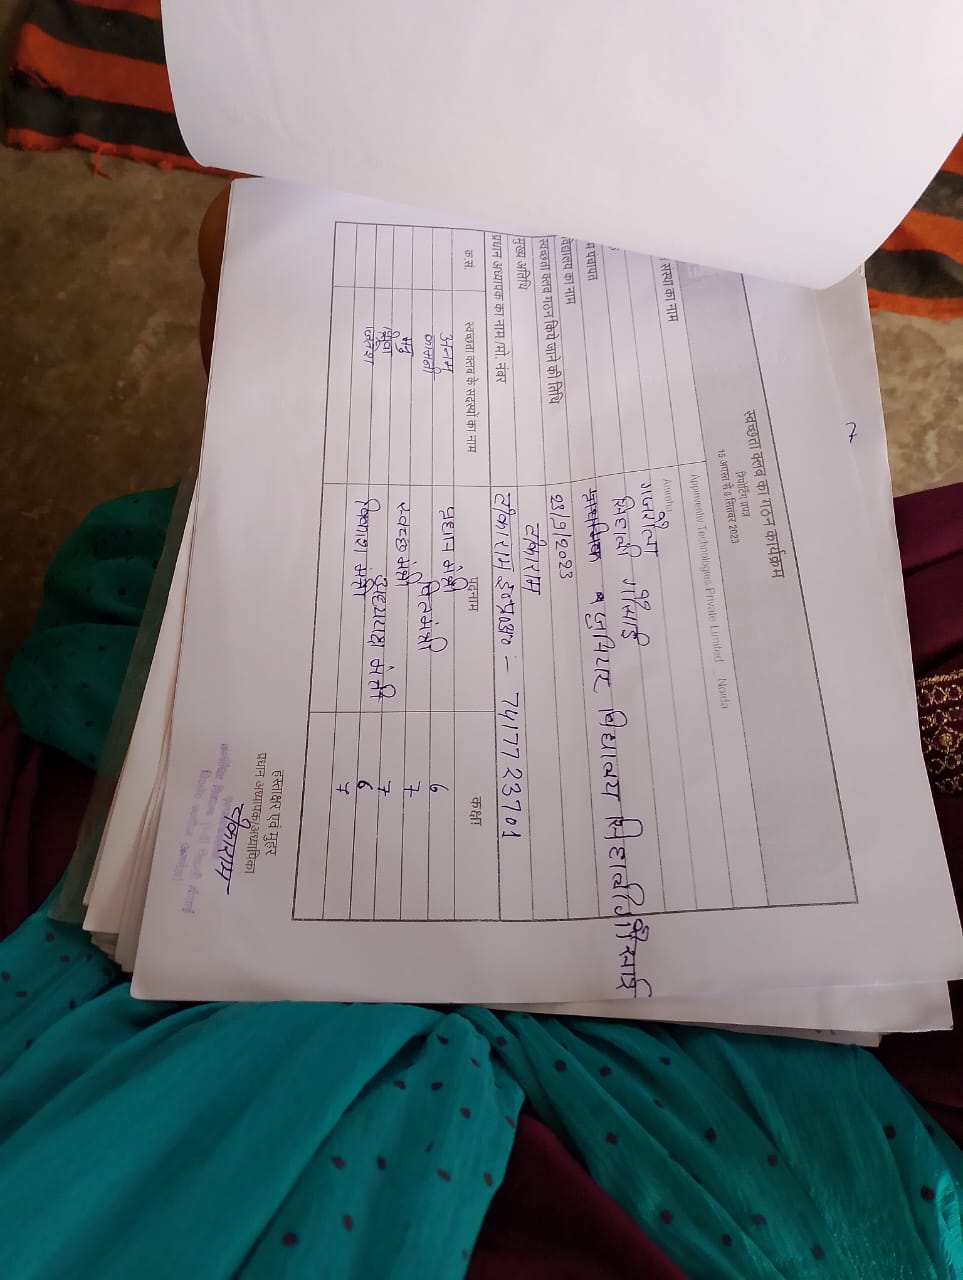 2
स्वच्छता क्लब का गठन कार्यक्रम
रिपोर्टिंग प्रपत्र
15 अगस्त से 8 सितंबर 2023
संस्था का नाम Appurvently Technologies Private Limited _ Noida
Amroha
गजरौला
म पंचायत सिहाली गौसाई
विद्यालय का नाम व जुनियर विद्यालय सिहाली गौसाई
स्वच्छता क्लब गठन किये जाने की तिथि 23/9/2023
मुख्य अतिथि टीकाराम
प्रधान अध्यापक का नाम /मो. नंबर टीकाराम इ०प्र०अ० :- 7417723701
क्र.सं. स्वच्छता क्लब के सदस्यों का नाम पदनाम कक्षा
अनम प्रधान मंत्री 6
कामनी वित्त मंत्री 7
मधु स्वच्छ मंत्री 7
शिवा मंत्री 6
मंत्री
हस्ताक्षर एवं मुहर
प्रधान अध्यापक/अध्यापिका
टीकाराम